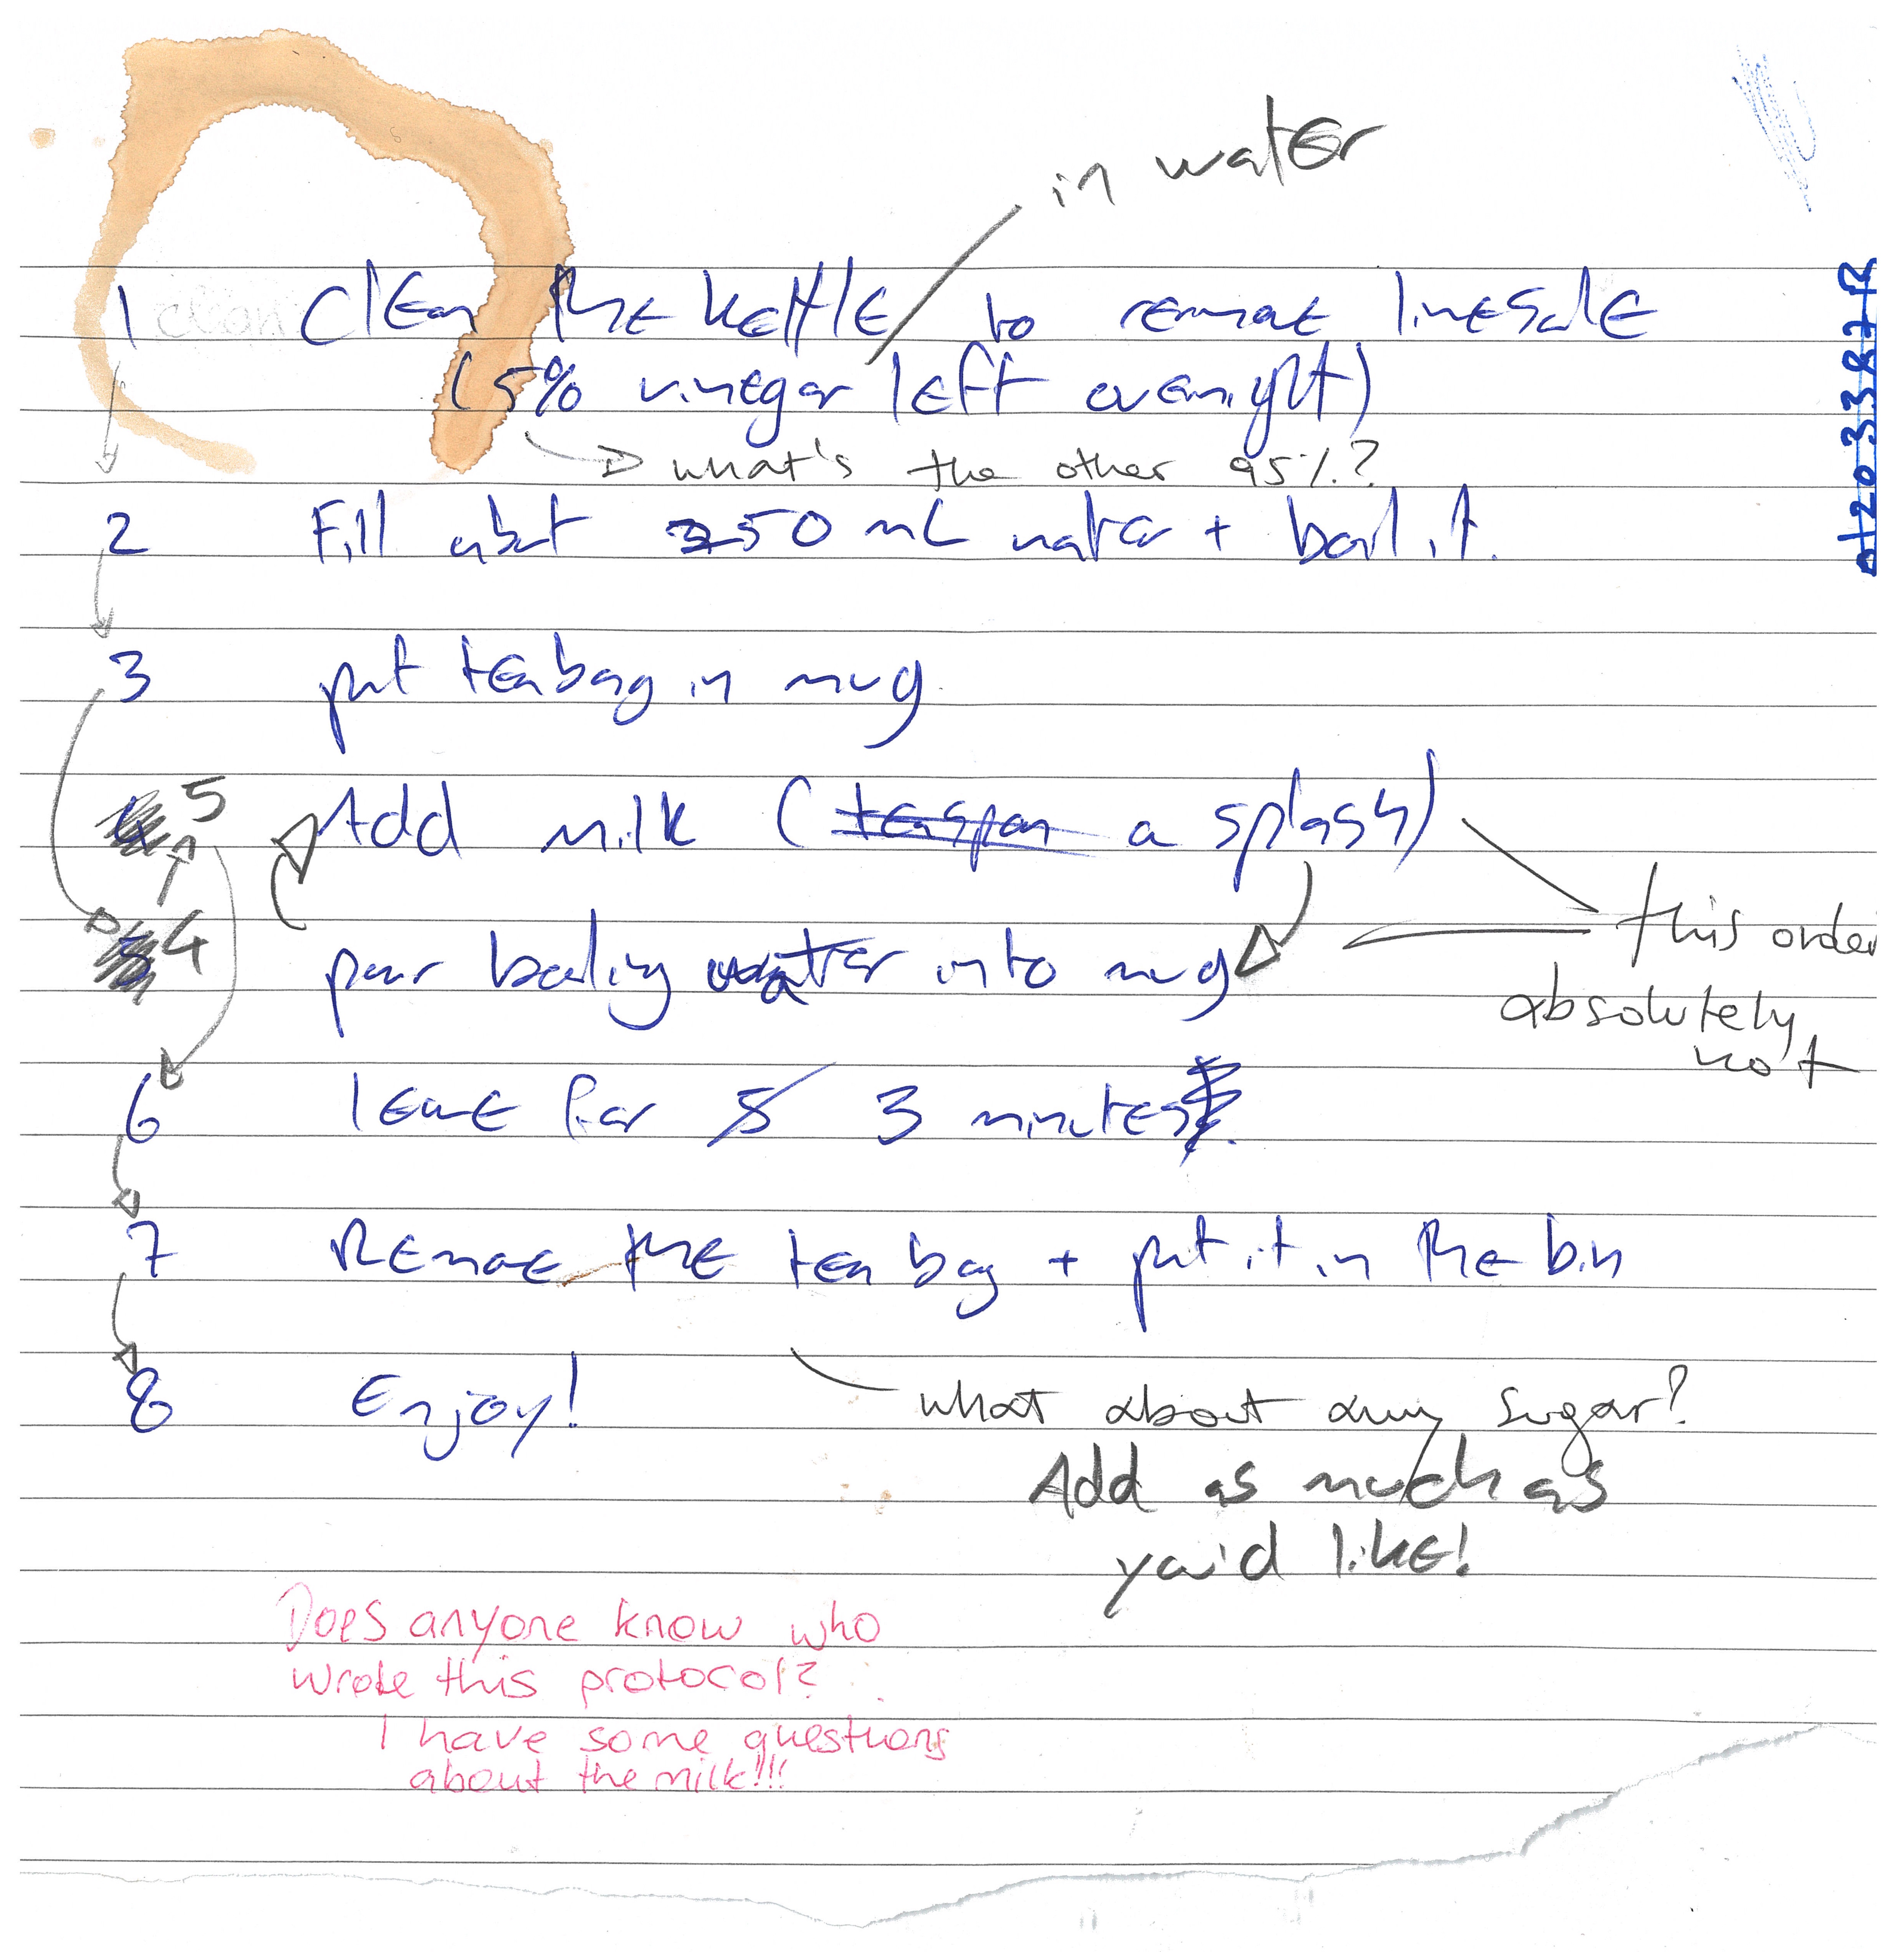 in water
1 clean the kettle to remove limescale
(5% vinegar left overnight)
what's the other 95%?
2 Fill about 250 mL water + boil it.
3 put teabag in mug
4 5 Add milk (teaspoon a splash)
5 4 pour boiling water into mug
this order
absolutely
not
6 leave for 5 3 minutes
7 Remove the tea bag + put it in the bin
8 Enjoy!
what about any sugar?
Add as much as
you'd like!
Does anyone know who
wrote this protocol?
I have some questions
about the milk!!!